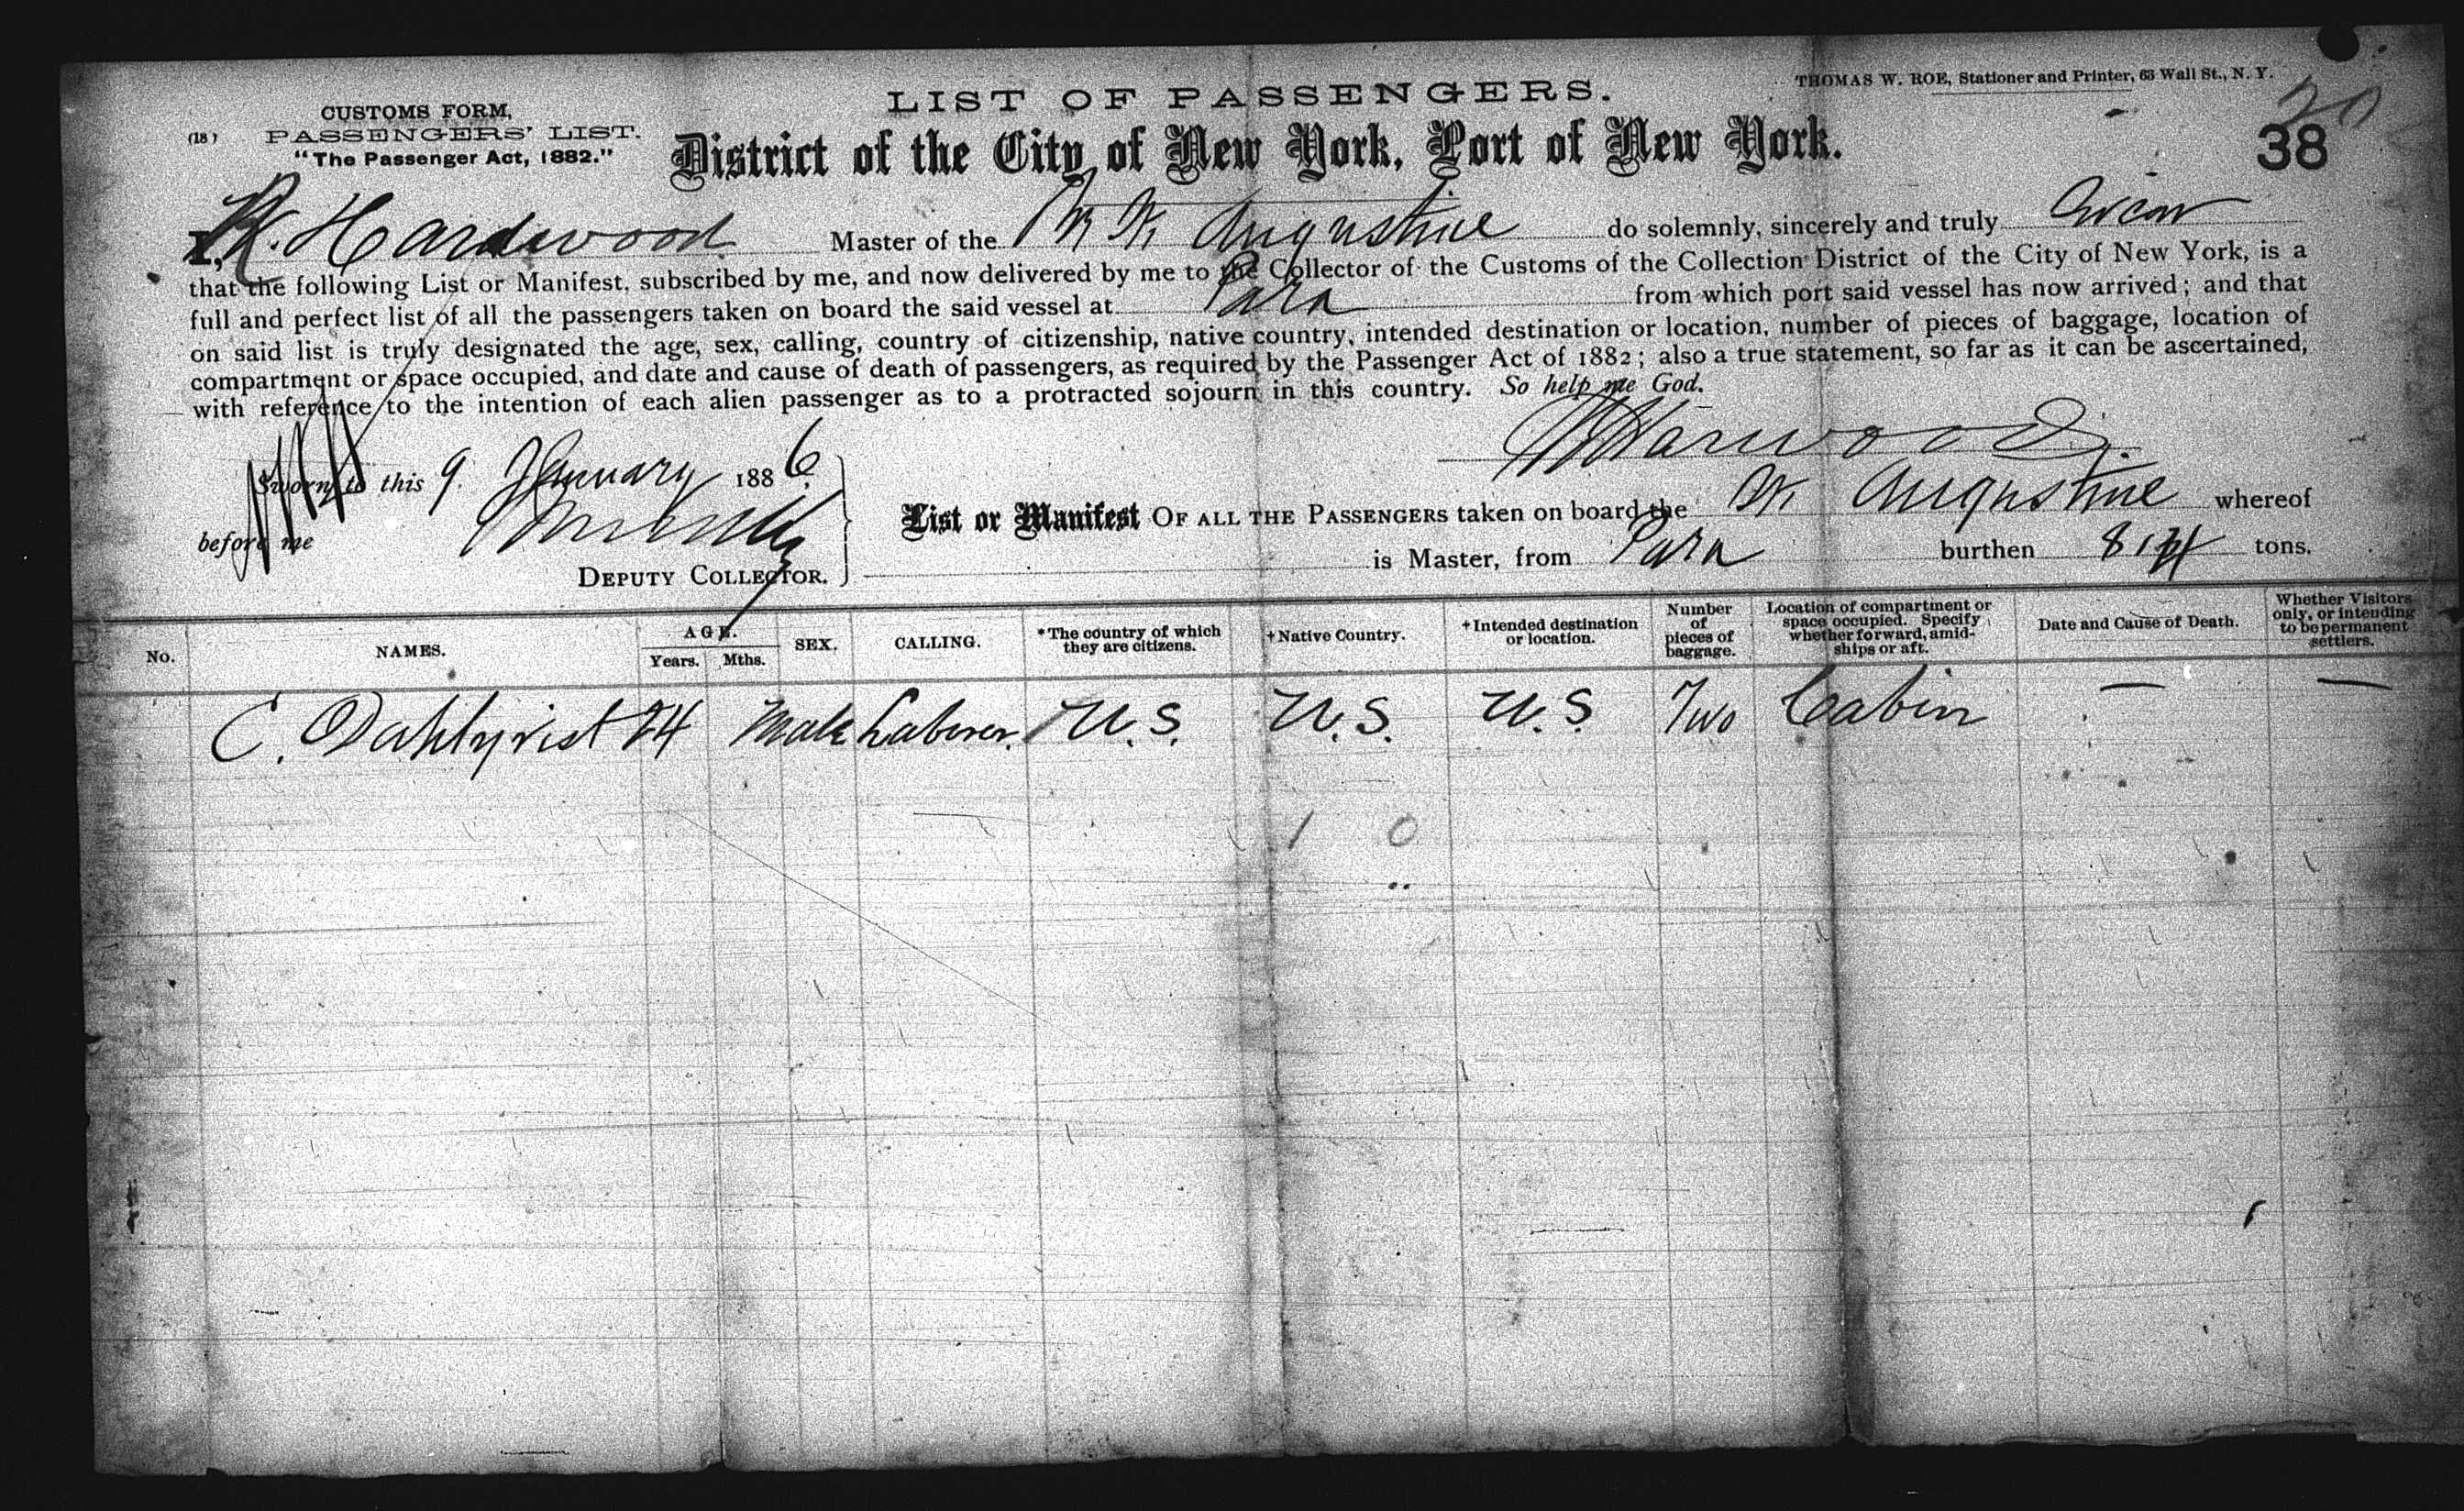 THOMAS W. ROE, Stationer and Printer, 63 Wall St., N. Y.
LIST OF PASSENGERS.
20
CUSTOMS FORM,
(18) PASSENGERS' LIST.
"The Passenger Act, 1882."
District of the City of New York, Port of New York.
38
I, R. Hardwood Master of the St Augustine do solemnly, sincerely and truly Swear
that the following List or Manifest, subscribed by me, and now delivered by me to the Collector of the Customs of the Collection District of the City of New York, is a
full and perfect list of all the passengers taken on board the said vessel at Para from which port said vessel has now arrived; and that
on said list is truly designated the age, sex, calling, country of citizenship, native country, intended destination or location, number of pieces of baggage, location of
compartment or space occupied, and date and cause of death of passengers, as required by the Passenger Act of 1882; also a true statement, so far as it can be ascertained,
with reference to the intention of each alien passenger as to a protracted sojourn in this country. So help me God.
Harwood
Sworn to this 9. January 1886
before me
DEPUTY COLLECTOR.
List or Manifest OF ALL THE PASSENGERS taken on board the St. Augustine whereof
is Master, from Para burthen tons.
No. NAMES. AGE. Years. Mths. SEX. CALLING. *The country of which they are citizens. †Native Country. †Intended destination or location. Number of pieces of baggage. Location of compartment or space occupied. Specify whether forward, amidships or aft. Date and Cause of Death. Whether Visitors only, or intending to be permanent settlers.
C. Dahlqvist 24 Male Laborer. U.S. U.S. U.S Two Cabin — —
1 0